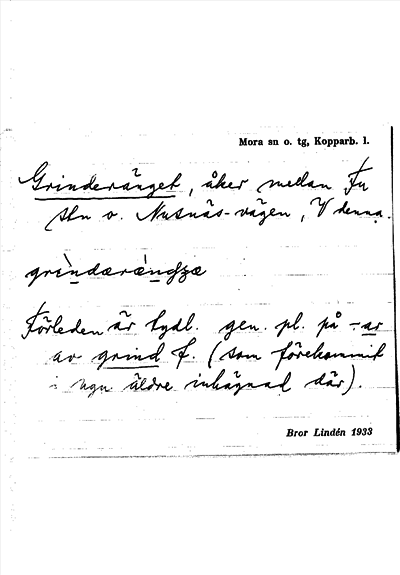 Mora sn o. tg, Kopparb. l.
Grinderänget, åker mellan Fu
stn o. Nusnäs-vägen, V denna.
Förleden är tydl. gen. pl. på -ar
av grind f. (som förekommit
i ngn äldre inhägnad där).
Bror Lindén 1933